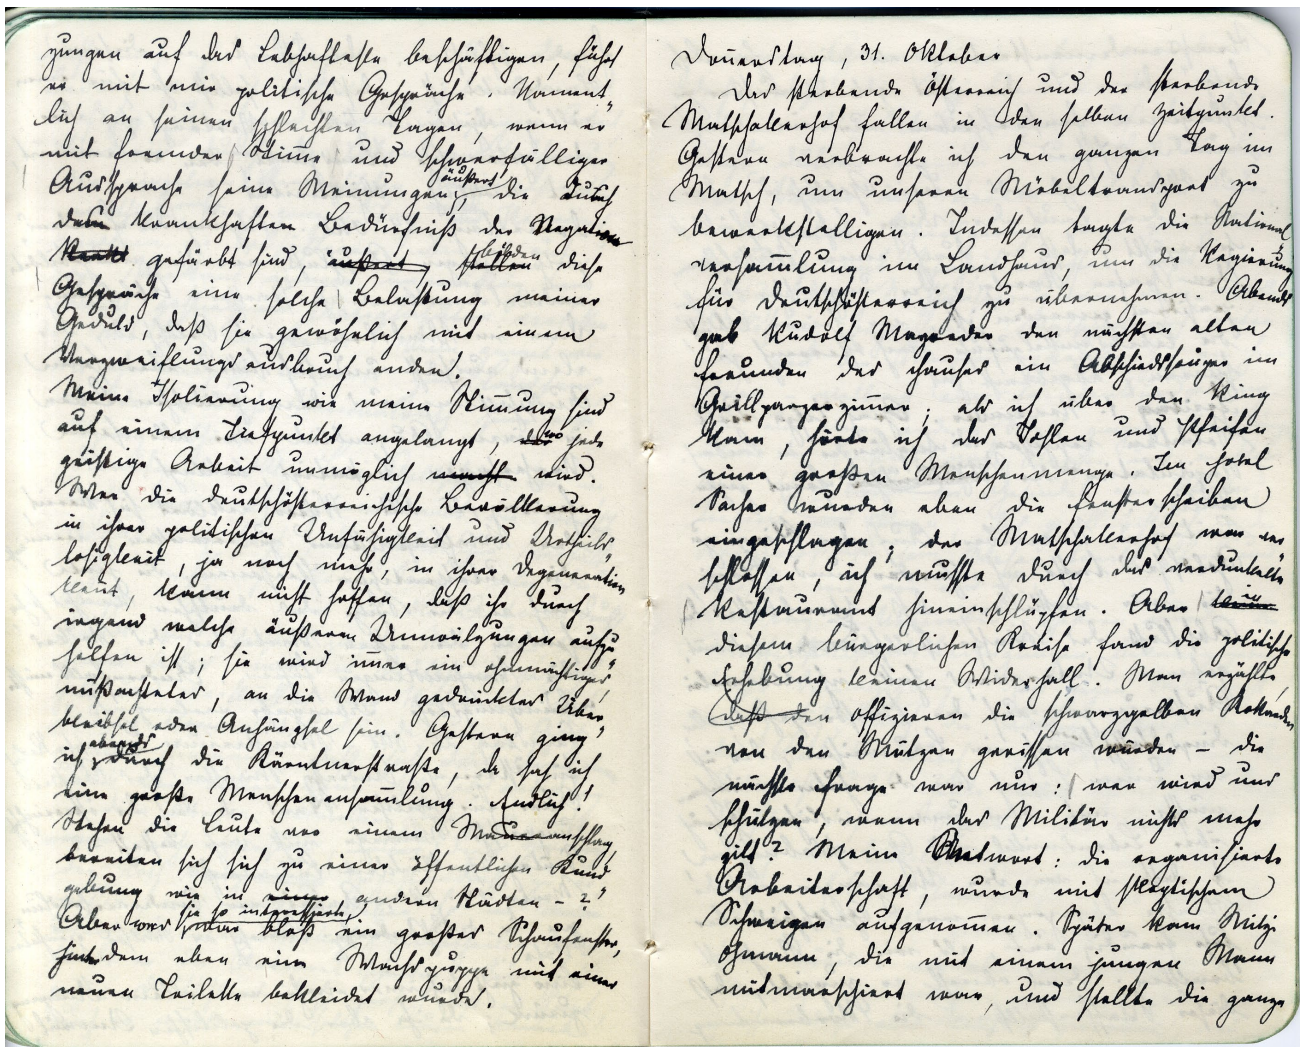 zungen auf das Lebhafteste beschäftigen, führt
er mit mir politische Gespräche. Nament-
lich an seinen schlechten Tagen, wenn er
mit fremder Stimme und schwerfälliger
Aussprache seine Meinungen äußert, die durch
dem krankhaften Bedürfniß der Negation
gefärbt sind, äußert, stellen bilden diese
Gespräche eine solche Belastung meiner
Geduld, daß sie gewöhnlich mit einem
Verzweiflungsausbruch enden.
Meine Isolierung wie meine Stimmung sind
auf einem Tiefpunkt angelangt, wo jede
geistige Arbeit unmöglich macht wird.
Wer die deutschösterreichische Bevölkerung
in ihrer politischen Unfähigkeit und Urtheils-
losigkeit, ja noch mehr, in ihrer Degeneration
kennt, kann nicht hoffen, daß ihr durch
irgend welche äußeren Umwälzungen aufzu-
helfen ist; sie wird immer ein ohnmächtiger,
mißachteter, an die Wand gedrückter Über-
bleibsel oder Anhängsel sein. Gestern ging
ich abends durch die Kärntnerstraße, da sah ich
eine große Menschenansammlung. Endlich!
Stehen die Leute vor einem Maueranschlag,
bereiten sich sich zu einer öffentlichen Kund-
gebung wie in einer anderen Städten – ?
Aber was sie so interessierte, war bloß ein großes Schaufenster,
hinter dem eben eine Wachspuppe mit einer
neuen Toilette bekleidet wurde.
Donnerstag, 31. Oktober
Das sterbende Österreich und der sterbende
Matschakerhof fallen in den selben Zeitpunkt.
Gestern verbrachte ich den ganzen Tag im
Matsch, um unseren Möbeltransport zu
bewerkstelligen. Indessen tagte die National-
versammlung im Landhaus, um die Regierung
für Deutschösterreich zu übernehmen. Abends
gab Rudolf Mayreder den nächsten alten
Freunden des Hauses ein Abschiedssouper im
Grillparzerzimmer; als ich über den Ring
kam, hörte ich das Johlen und Pfeifen
einer großen Menschenmenge. Im Hotel
Sacher wurden eben die Fensterscheiben
eingeschlagen; der Matschakerhof war ver-
schlossen, ich musste durch das verdunkelte
Restaurant hineinschlüpfen. Aber in
diesem bürgerlichen Kreise fand die politische
Erhebung keinen Widerhall. Man erzählte,
daß den Offizieren die schwarzgelben Kokarden
von den Mützen gerissen wurden – die
nächste Frage war nur: wer wird uns
schützen, wenn das Militär nichts mehr
gilt? Meine Antwort: die organisierte
Arbeiterschaft, wurde mit skeptischem
Schweigen aufgenommen. Später kam Mitzi
Ohmann, die mit einem jungen Mann
mitmarschiert war, und stellte die ganze